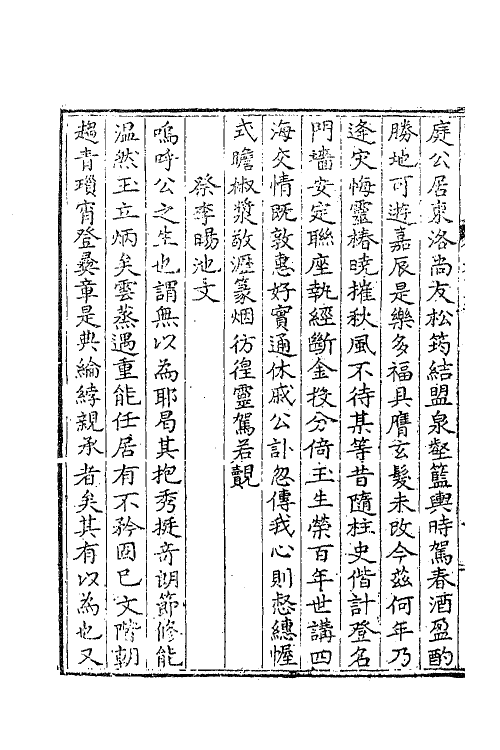 庭公居東洛尚友松筠結盟泉壑籃輿時駕春酒盈酌
勝地可遊嘉辰是樂多福具膺玄髮未改今茲何年乃
逢灾悔靈椿曉摧秋風不待某等昔隨柱史偕計登名
門墻安定聯座執經斷金投分倚玉生榮百年世講四
海交情既敦惠好實通休戚公訃忽傳我心則惄繐幄
式瞻椒漿敬瀝篆烟彷徨靈駕若覿
祭李暘池文
嗚呼公之生也謂無以為耶曷其抱秀挺奇朗節修能
温然玉立炳矣雲蒸遇重能任居有不矜固已文階朝
趨青瑣宵登㢡章是典綸綍親承者矣其有以為也又